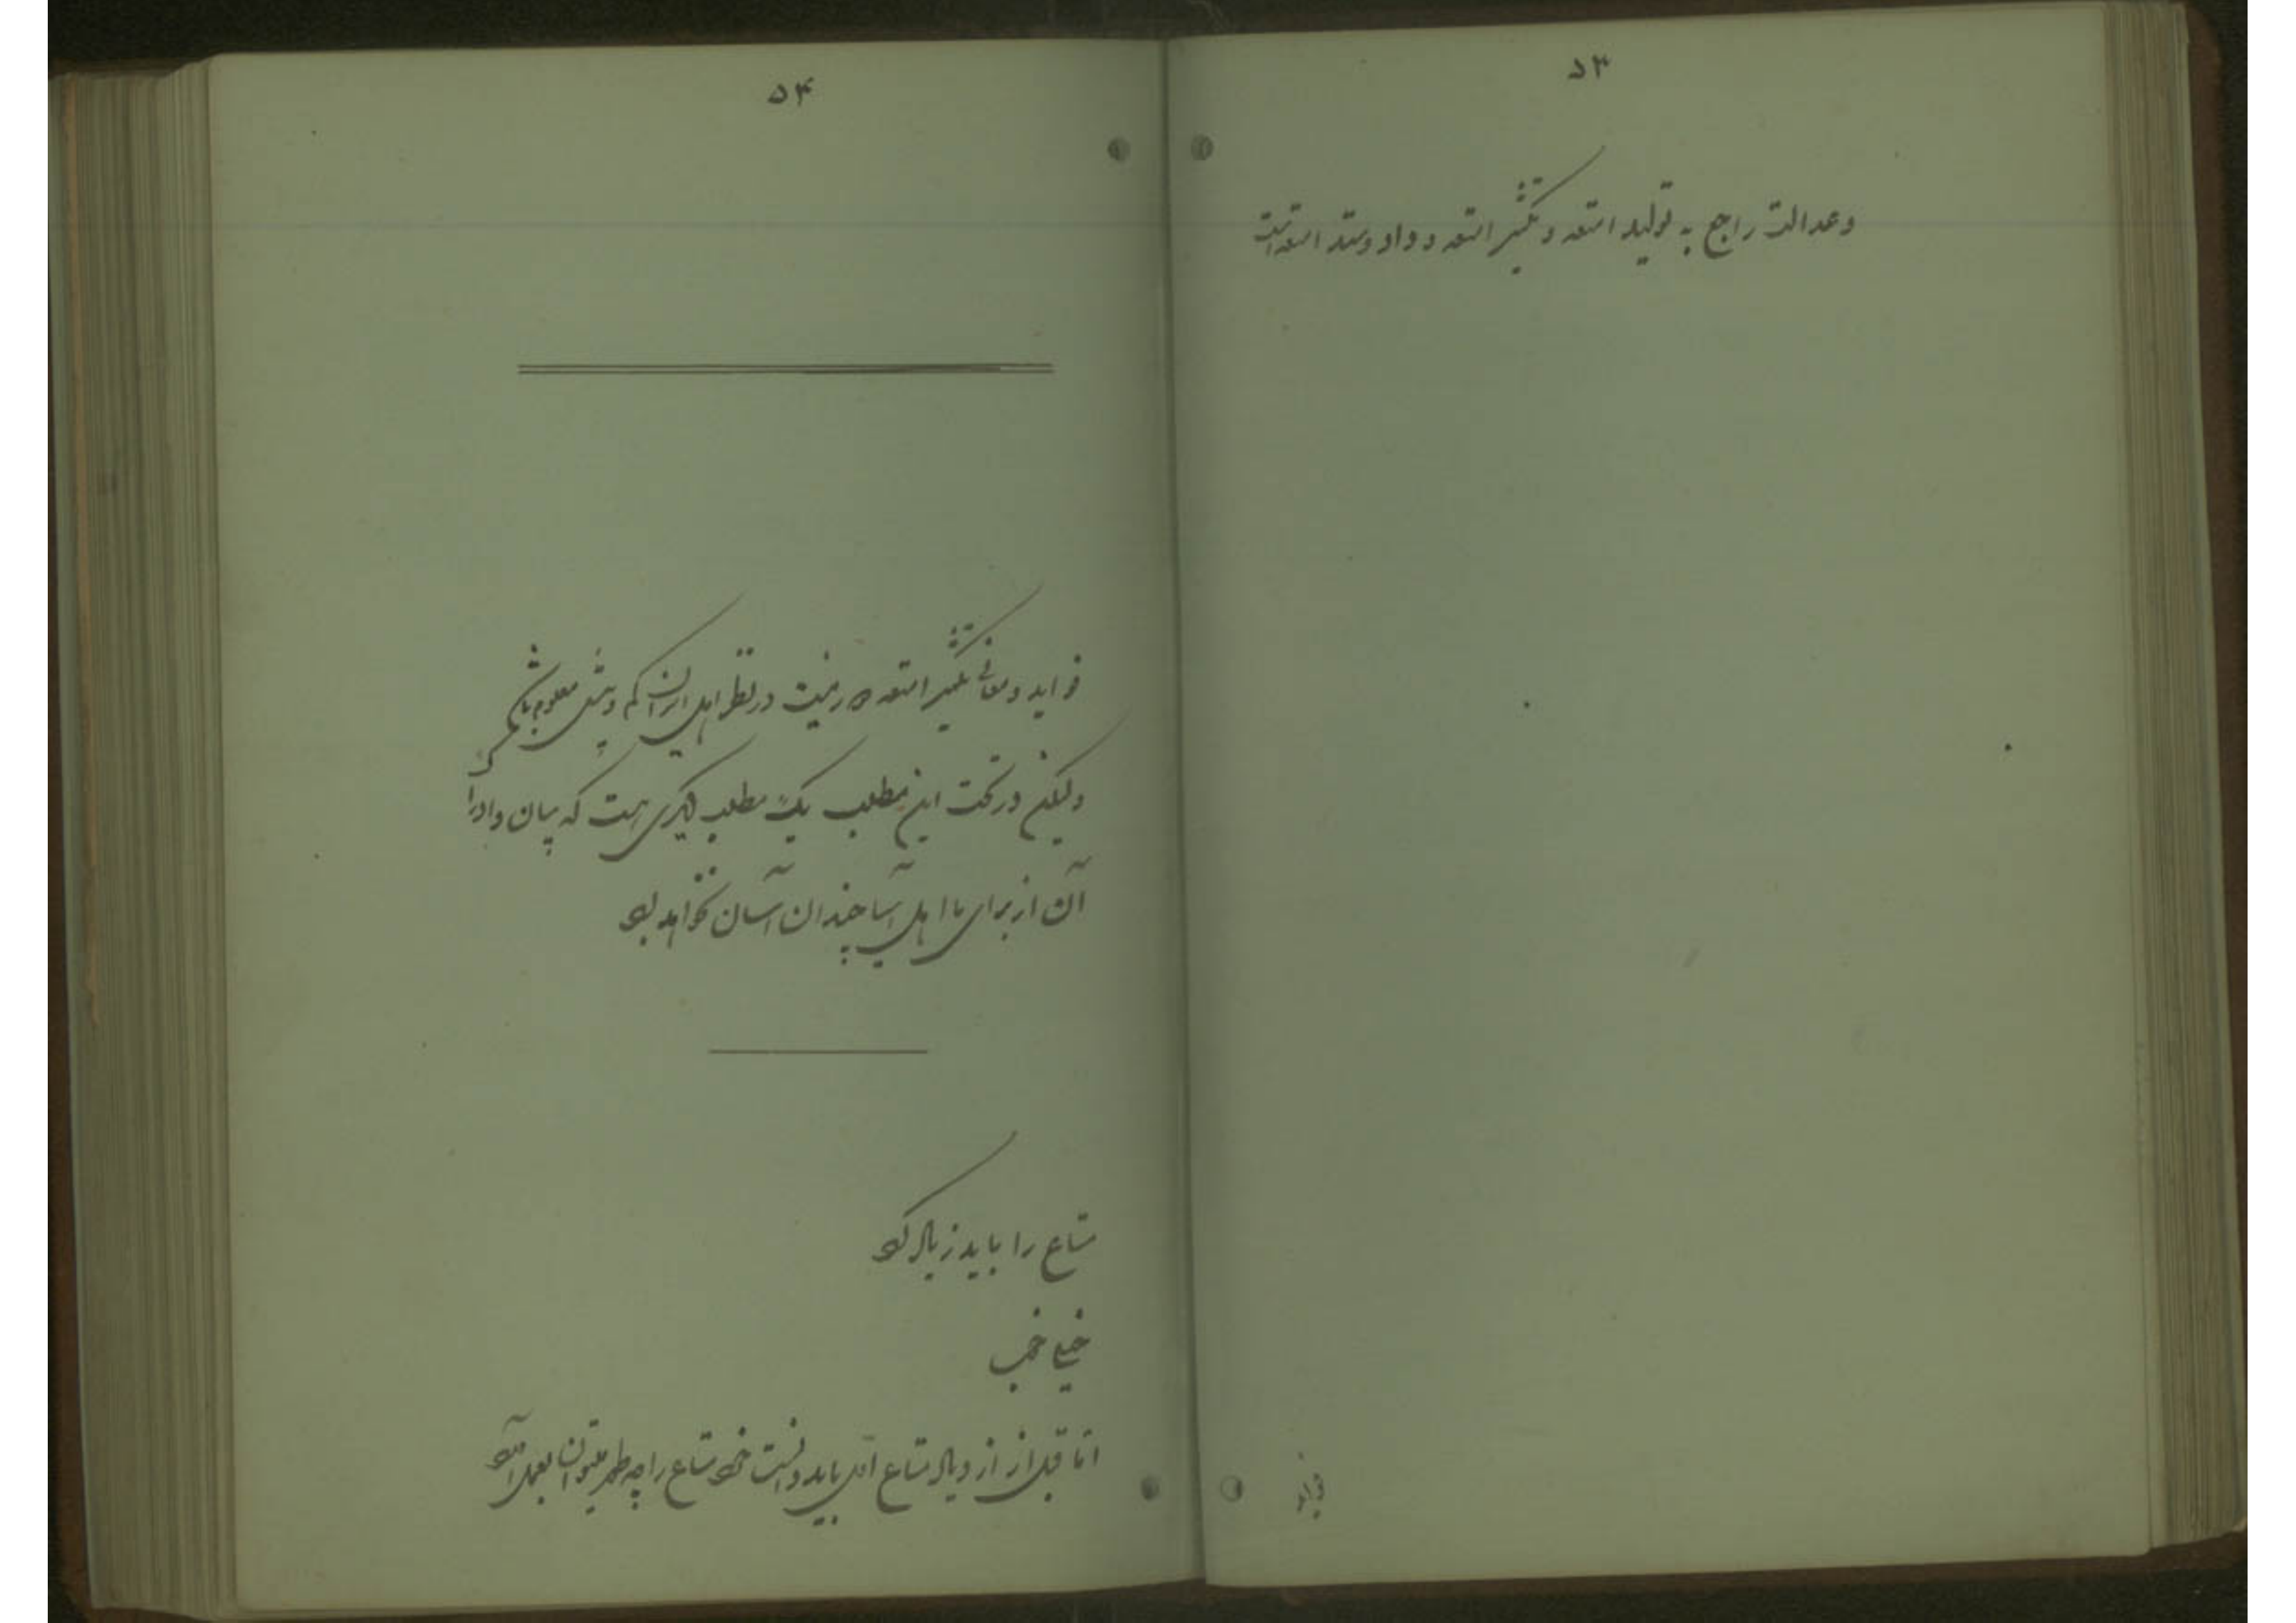 ۵۳
وعدالت راجع به تولید امتعه و تکثیر امتعه و داد و ستد امتعه است
فواید
۵۴
فواید و معانی تکثیر امتعه در نظر اهل ایران کم و بیش معلوم باشد
ولیکن در تحت این مطلب یک مطلب دیگری هست که بیان و ادراک
آن از برای ما اهل آسیا چندان آسان نخواهد بود
متاع را باید زیاد کرد
خیلی خوب
اما قبل از ازدیاد متاع اول باید دانست خود متاع را چه طور میتوان بعمل آورد